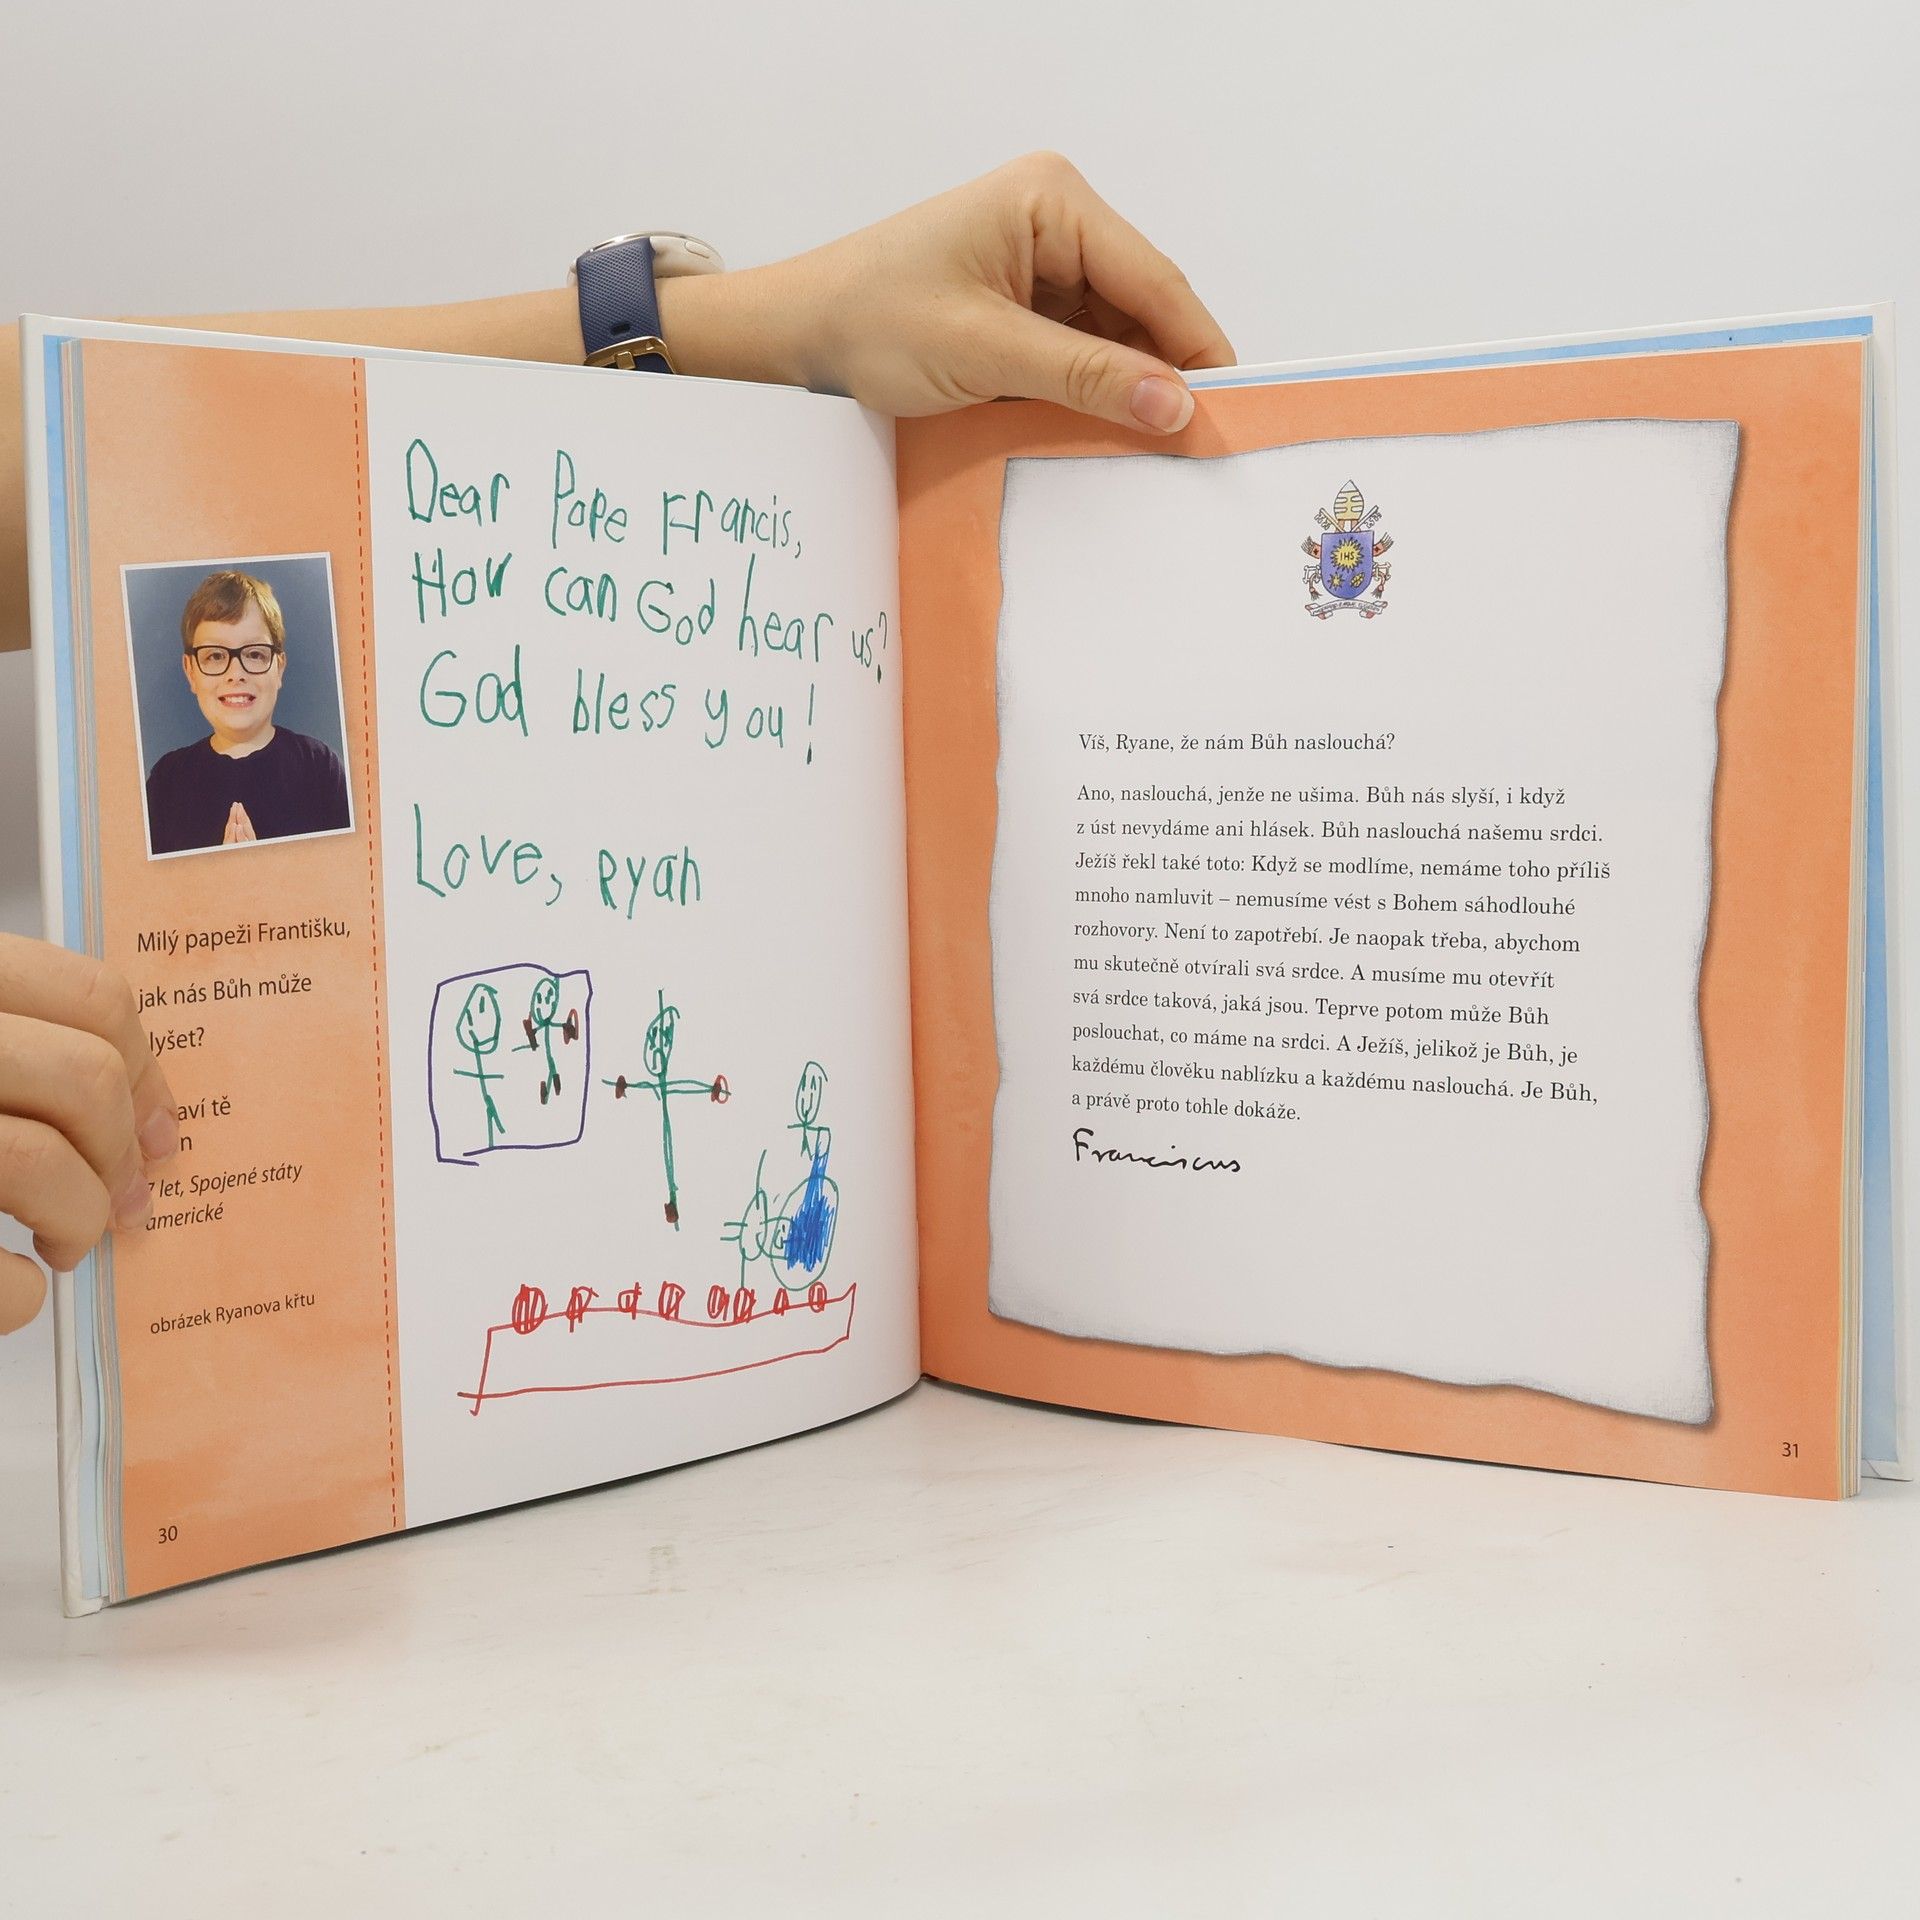 Milý papeži Františku,
jak nás Bůh může
lyšet?
aví tě
n
7 let, Spojené státy
americké
obrázek Ryanova křtu
30
Dear Pope Francis,
How can God hear us?
God bless you!
Love, Ryan
IHS
Víš, Ryane, že nám Bůh naslouchá?
Ano, naslouchá, jenže ne ušima. Bůh nás slyší, i když
z úst nevydáme ani hlásek. Bůh naslouchá našemu srdci.
Ježíš řekl také toto: Když se modlíme, nemáme toho příliš
mnoho namluvit – nemusíme vést s Bohem sáhodlouhé
rozhovory. Není to zapotřebí. Je naopak třeba, abychom
mu skutečně otvírali svá srdce. A musíme mu otevřít
svá srdce taková, jaká jsou. Teprve potom může Bůh
poslouchat, co máme na srdci. A Ježíš, jelikož je Bůh, je
každému člověku nablízku a každému naslouchá. Je Bůh,
a právě proto tohle dokáže.
Franciscus
31